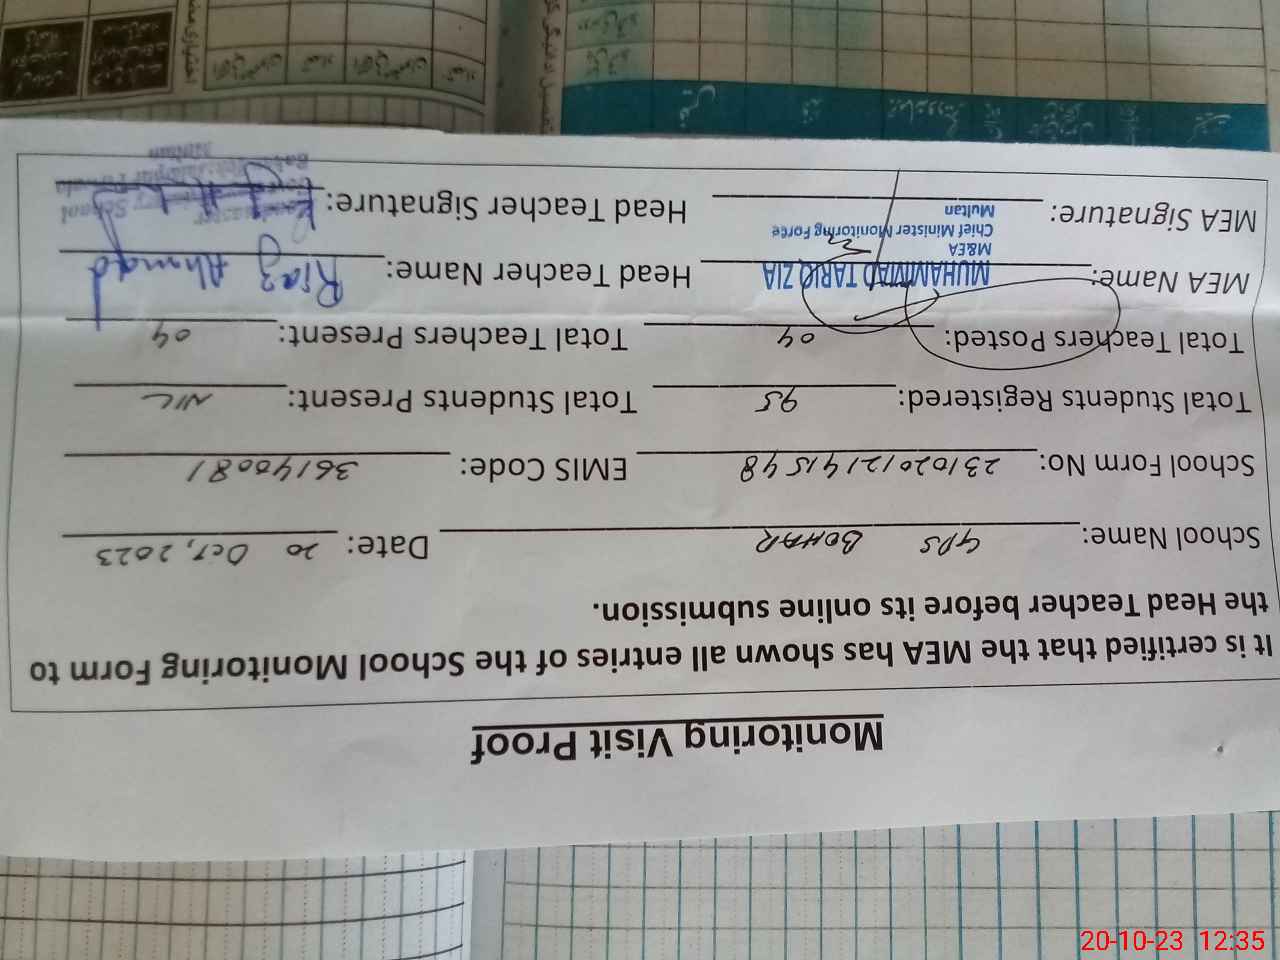 Monitoring Visit Proof
It is certified that the MEA has shown all entries of the School Monitoring Form to
the Head Teacher before its online submission.
School Name: GPS BOHAR Date: 20 Oct, 2023
School Form No: 23102012141548 EMIS Code: 36140081
Total Students Registered: 95 Total Students Present: NIL
Total Teachers Posted: 04 Total Teachers Present: 04
MEA Name: MUHAMMAD TARIQ ZIA Head Teacher Name: Riaz Ahmad
M&EA
Chief Minister Monitoring Force
Multan
MEA Signature: Head Teacher Signature:
20-10-23 12:35